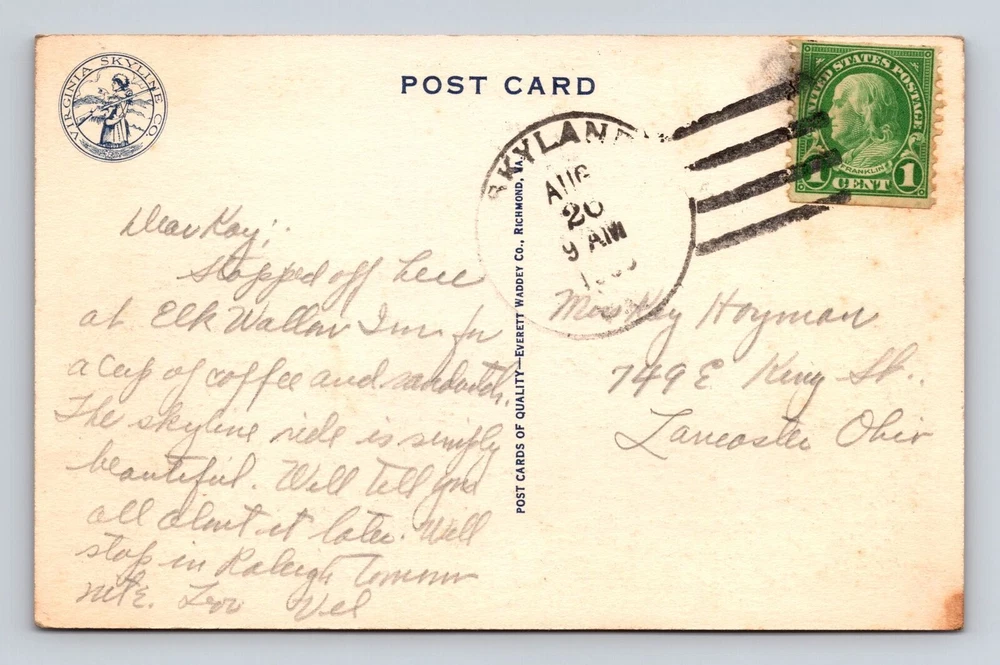 VIRGINIA SKYLINE CO.
POST CARD
UNITED STATES POSTAGE
FRANKLIN
1 CENT 1
SKYLAND
AUG
20
9 AM
Dear Kay;
Stopped off here
at Elk Wallow Inn for
a cup of coffee and sandwich.
The skyline ride is simply
beautiful. Will tell you
all about it later. Will
stop in Raleigh tomorrow
nite.
POST CARDS OF QUALITY—EVERETT WADDEY CO., RICHMOND, VA.
Miss Kay Hoyman
749 E. King St.
Lancaster Ohio